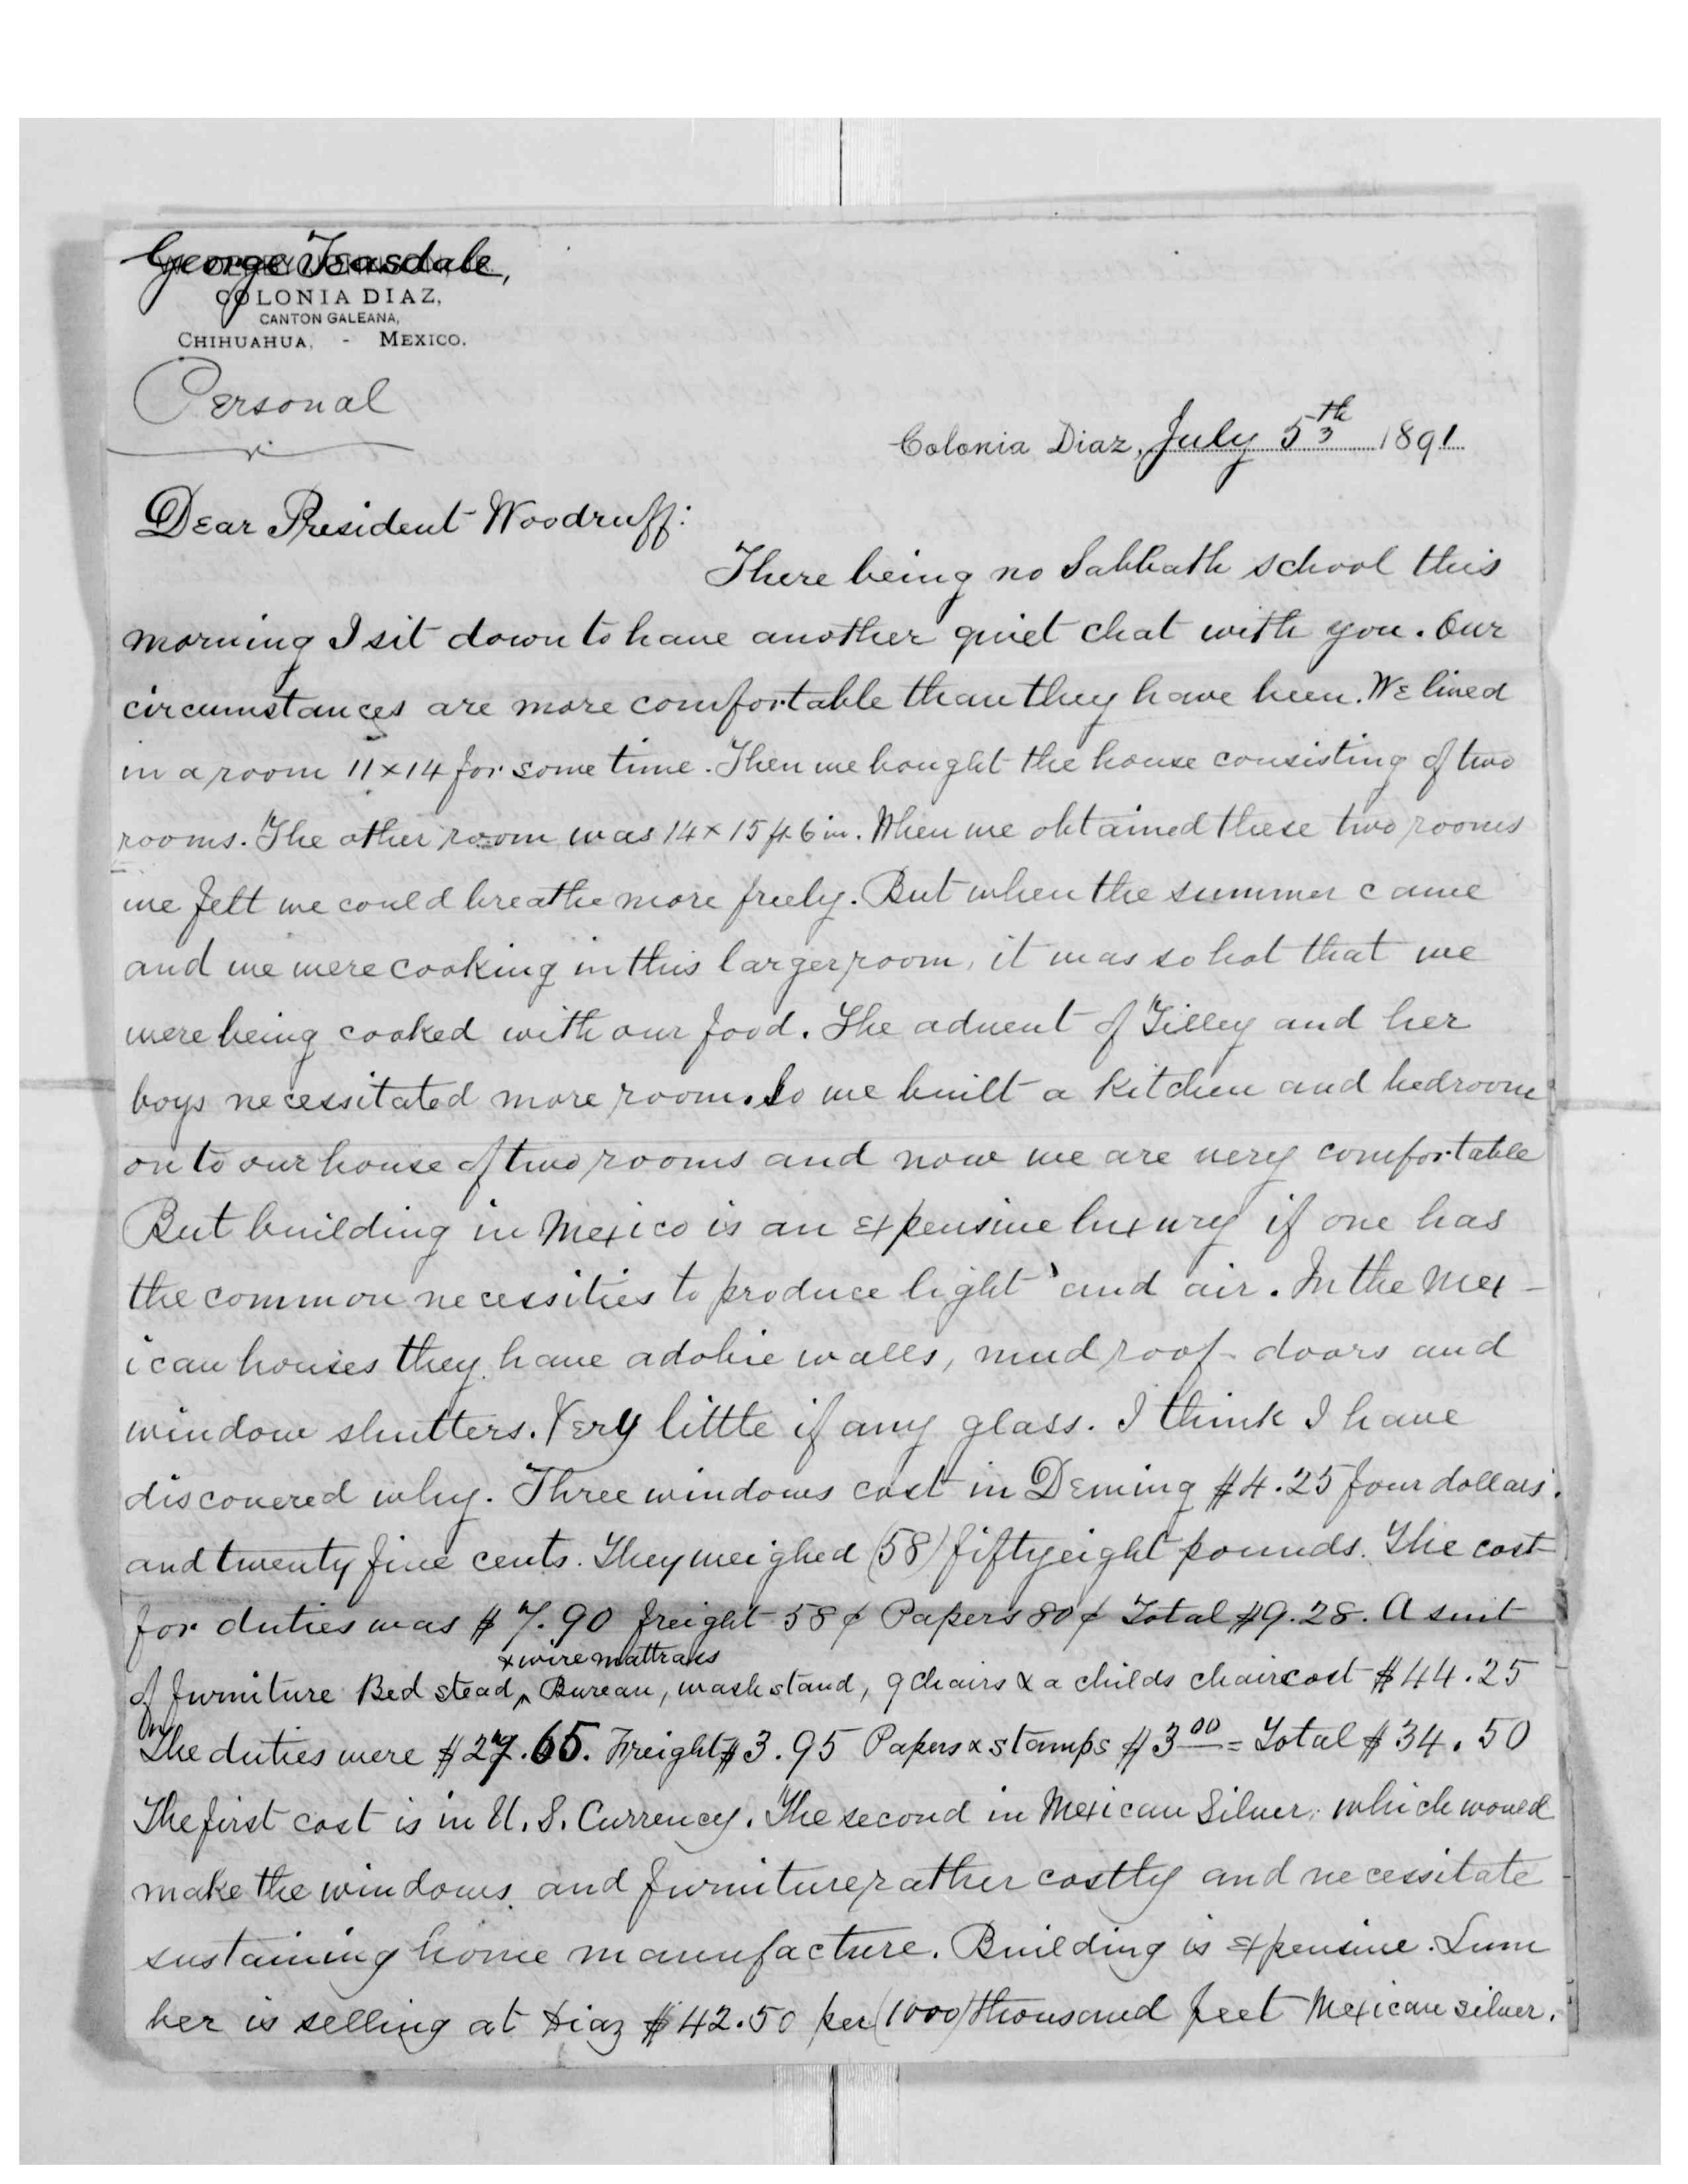 George Teasdale,
COLONIA DIAZ,
CANTON GALEANA,
CHIHUAHUA, - MEXICO.
Personal
Colonia Diaz, July 5th 1891
Dear President Woodruff:
There being no Sabbath school this
morning I sit down to have another quiet chat with you. Our
circumstances are more comfortable than they have been. We lived
in a room 11 x 14 for some time. Then we bought the house consisting of two
rooms. The other room was 14 x 15 ft 6 in. When we obtained these two rooms
we felt we could breathe more freely. But when the summer came
and we were cooking in this larger room, it was so hot that we
were being cooked with our food. The advent of Tilley and her
boys necessitated more room. So we built a kitchen and bedroom
on to our house of two rooms and now we are very comfortable
But building in Mexico is an expensive luxury if one has
the common necessities to produce light and air. In the Mex-
ican houses they have adobie walls, mud roof doors and
window shutters. Very little if any glass. I think I have
discovered why. Three windows cost in Deming $4.25 four dollars
and twenty five cents. They weighed (58) fiftyeight pounds. The cost
for duties was $7.90 freight 58¢ Papers 80¢ Total $9.28. A suit
& wire mattrass
of furniture Bed stead ^ Bureau, washstand, 9 chairs & a childs chair cost $44.25
The duties were $27.65. Freight $3.95 Papers & stamps $3 00 = Total $34.50
The first cost is in U. S. Currency. The second in Mexican Silver, which would
make the windows and furniture rather costly and necessitate
sustaining home manufacture. Building is expensive. Lum
ber is selling at Diaz $42.50 per (1000) thousand feet Mexican silver.